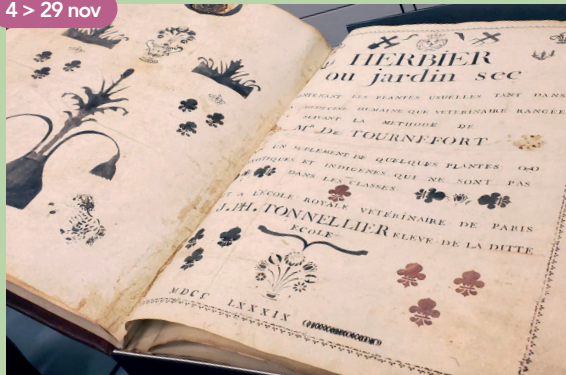 4 > 29 nov
HERBIER
ou jardin sec
CONTENANT LES PLANTES USUELLES TANT DANS
MEDECINE HUMAINE QUE VETERINAIRE RANGÉE
SUIVANT LA METHODE DE
Mr. DE TOURNEFORT
UN SUPLEMENT DE QUELQUES PLANTES
EXOTIQUES ET INDIGENES QUI NE SONT PAS
DANS LES CLASSES
A L'ECOLE ROYALE VETERINAIRE DE PARIS
J. PH. TONNELLIER ELEVE DE LA DITTE
ECOLE
MDCC LXXXIX